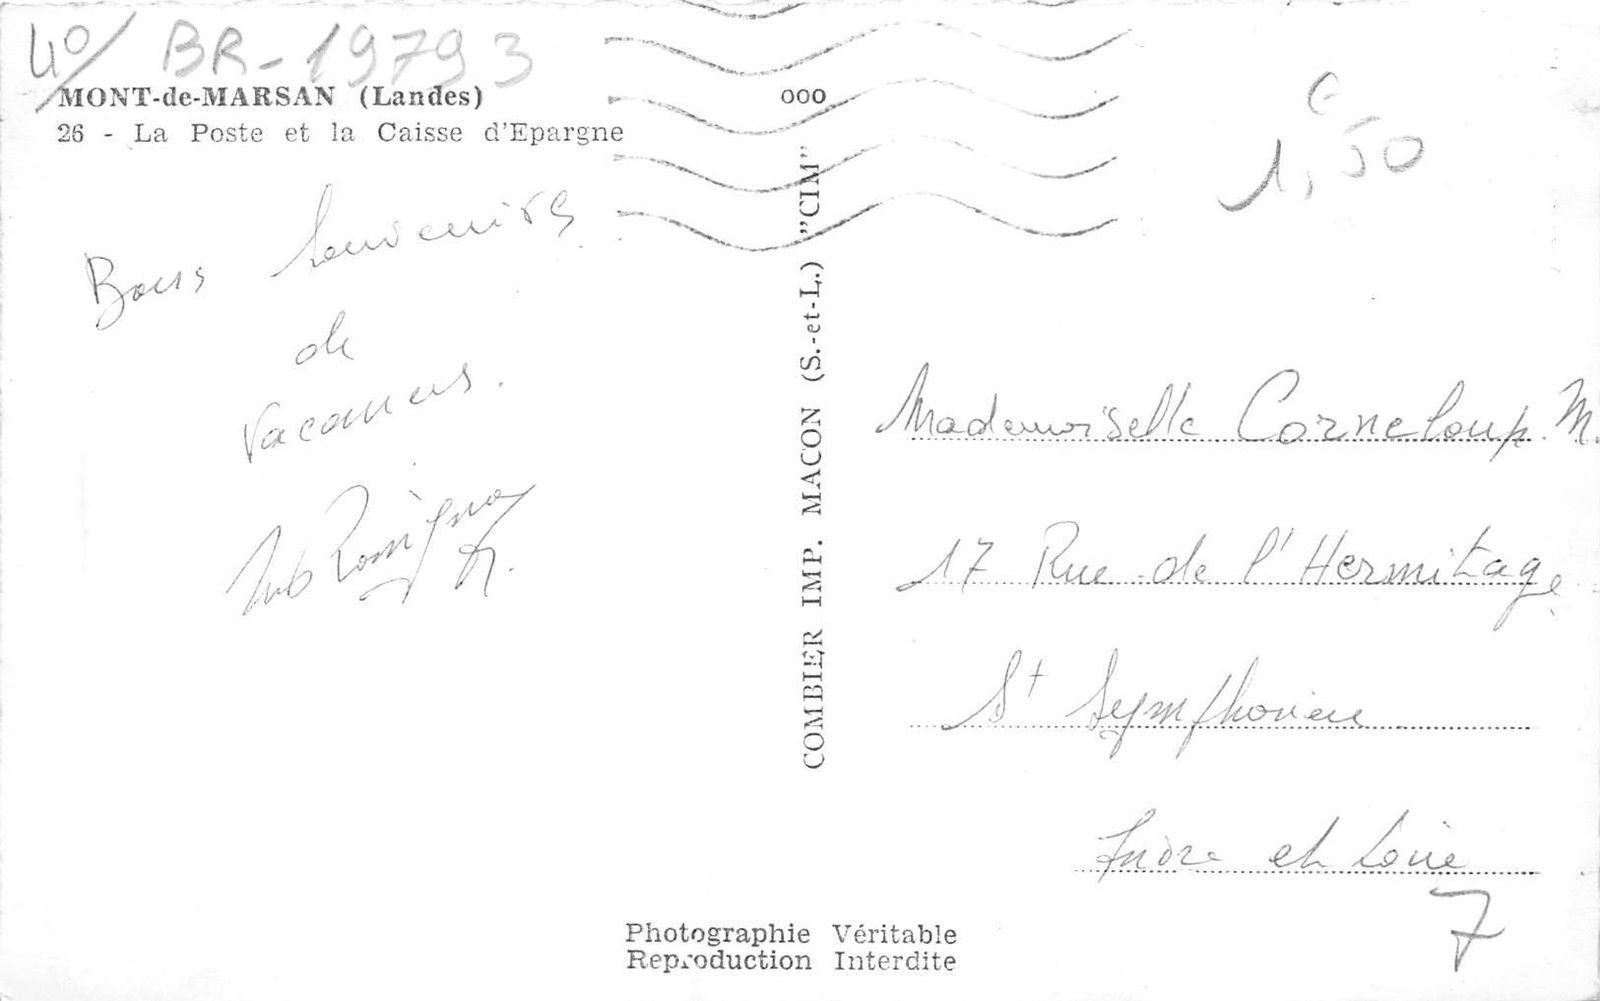 40/ BR-19793
MONT-de-MARSAN (Landes)
26 - La Poste et la Caisse d'Epargne
000
1,50
Bons Souvenirs
de
Vacances.
COMBIER IMP. MACON (S.-et-L.) "CIM"
Mademoiselle Corneloup. M.
17 Rue de l'Hermitage
St Symphorien
Indre et Loire
7
Photographie Véritable
Reproduction Interdite